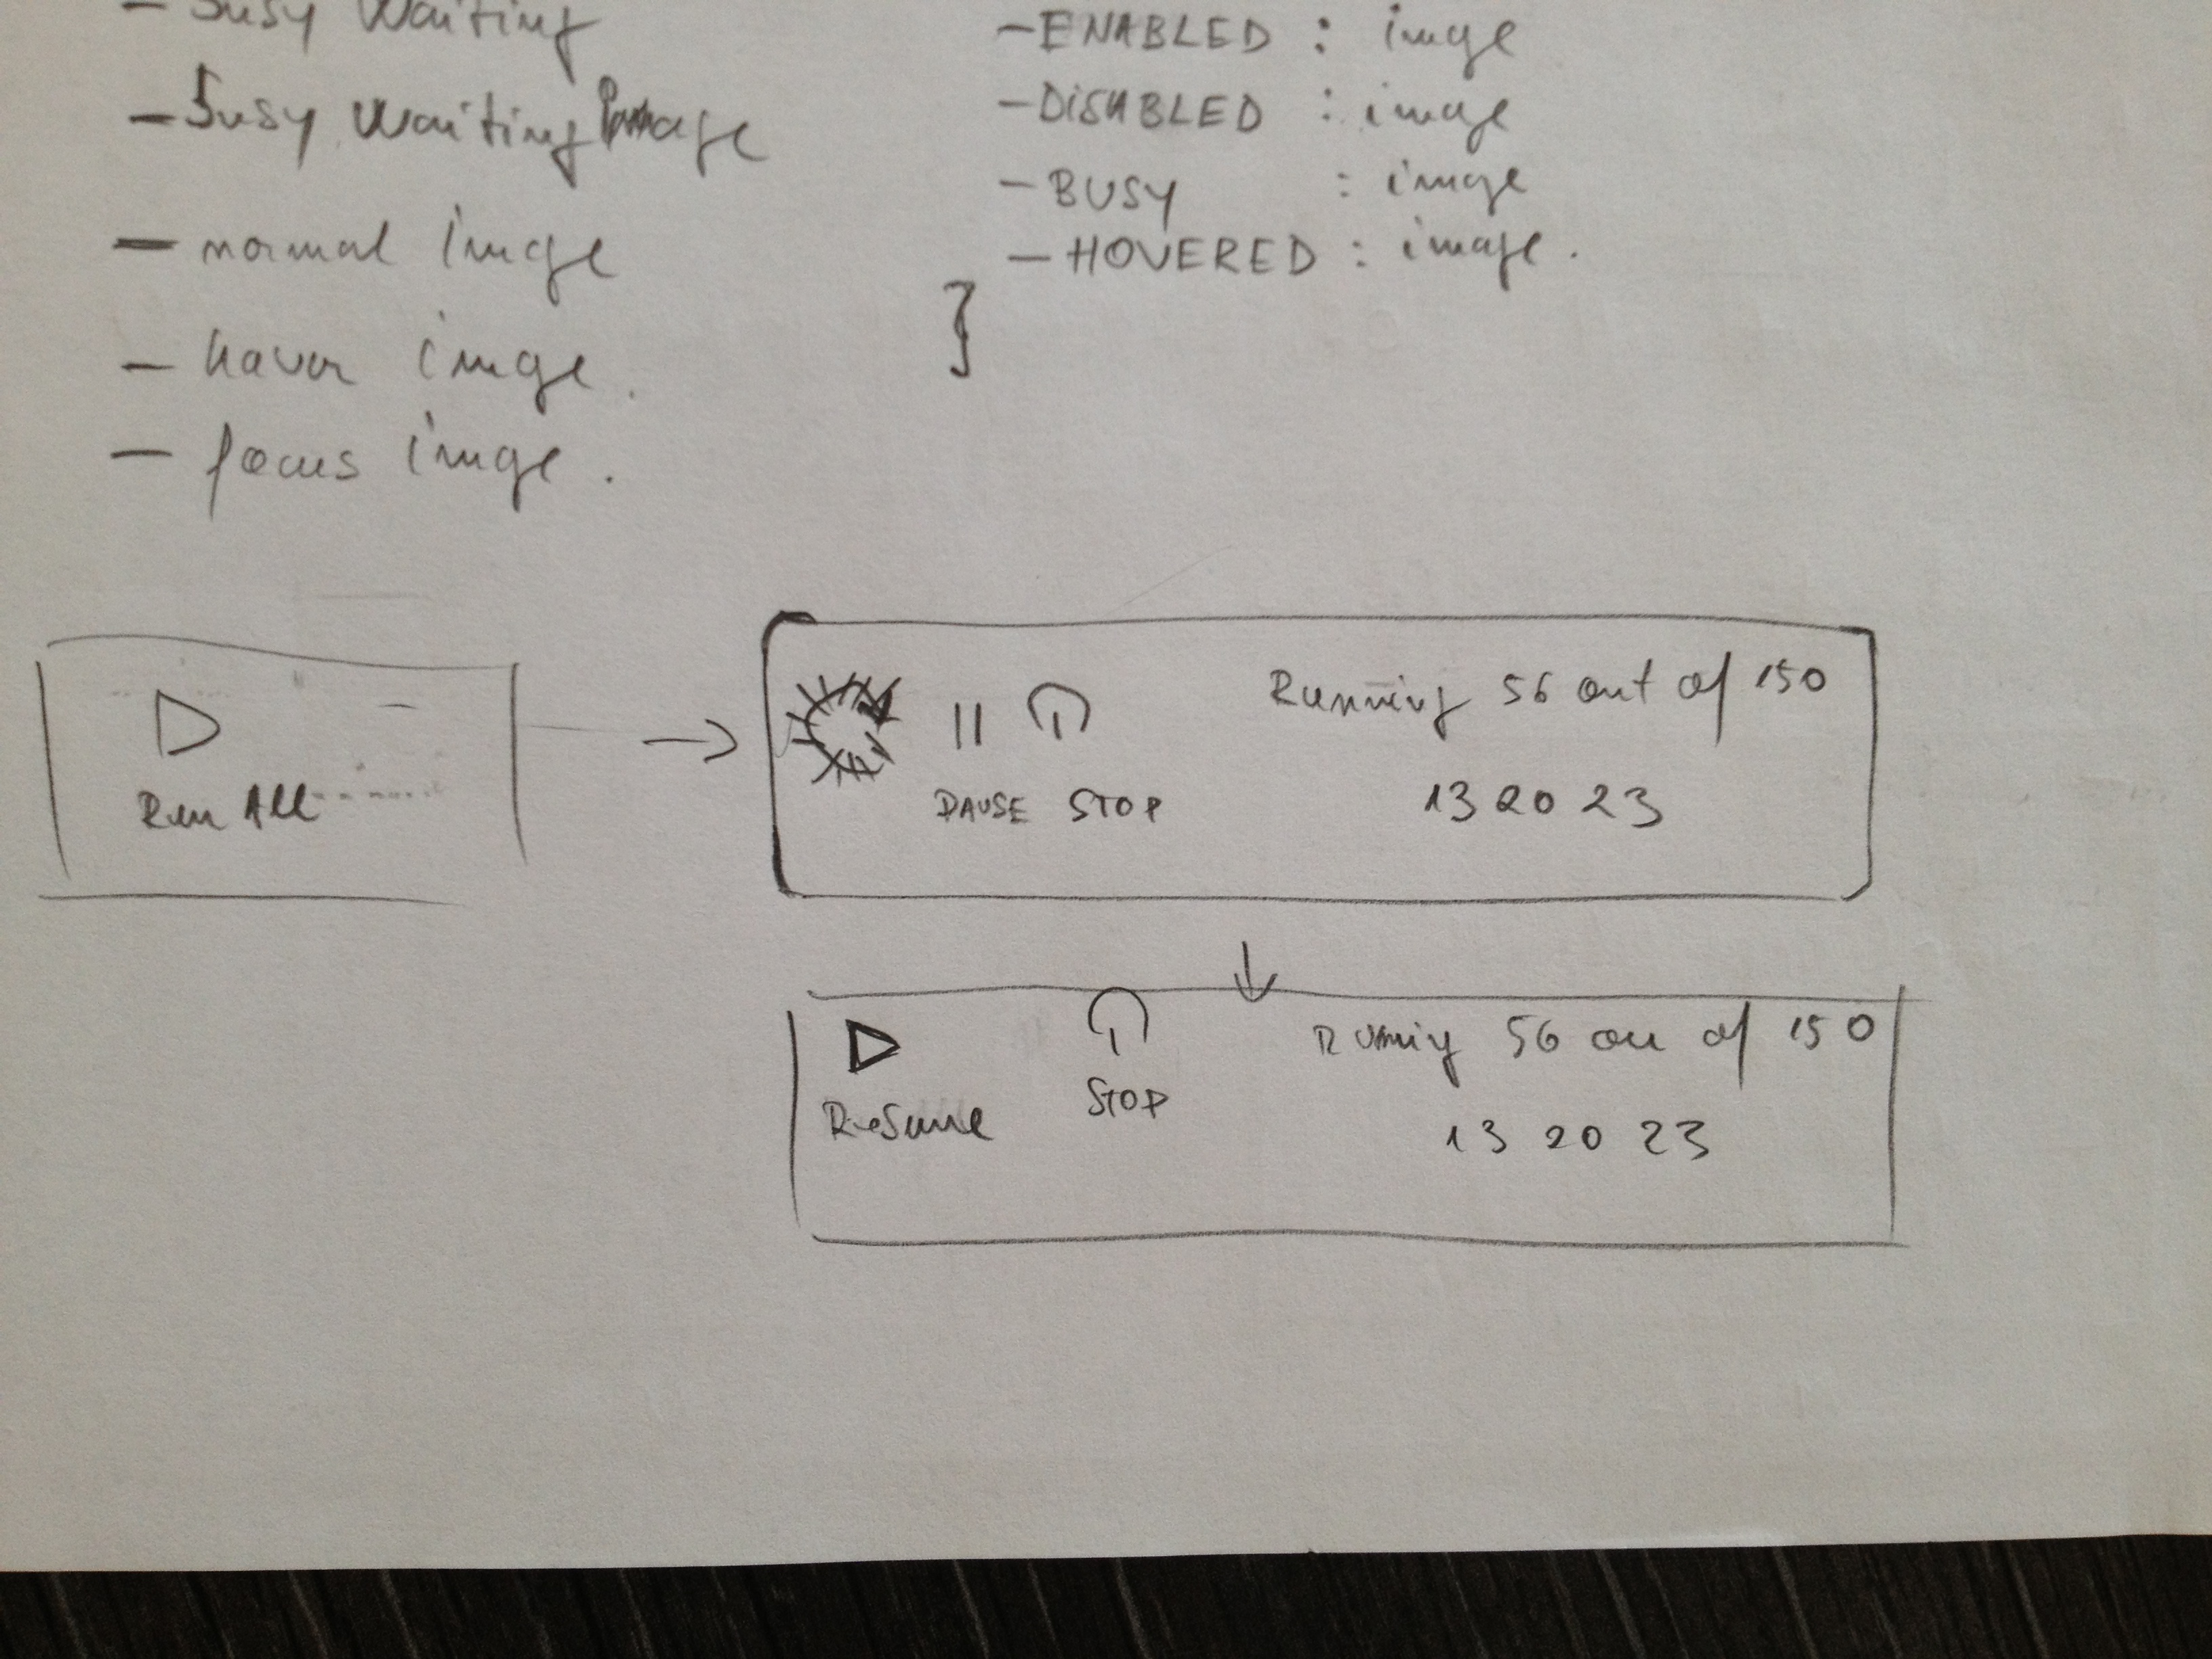 - Busy Waiting
- Busy Waiting Image
- normal Image
- havor image.
- focus image.
- ENABLED : image
- DISABLED : image
- BUSY : image
- HOVERED : image.
}
Run All
PAUSE STOP
Running 56 out of 150
13 20 23
Resume
STOP
Runing 56 ou of 150
13 20 23